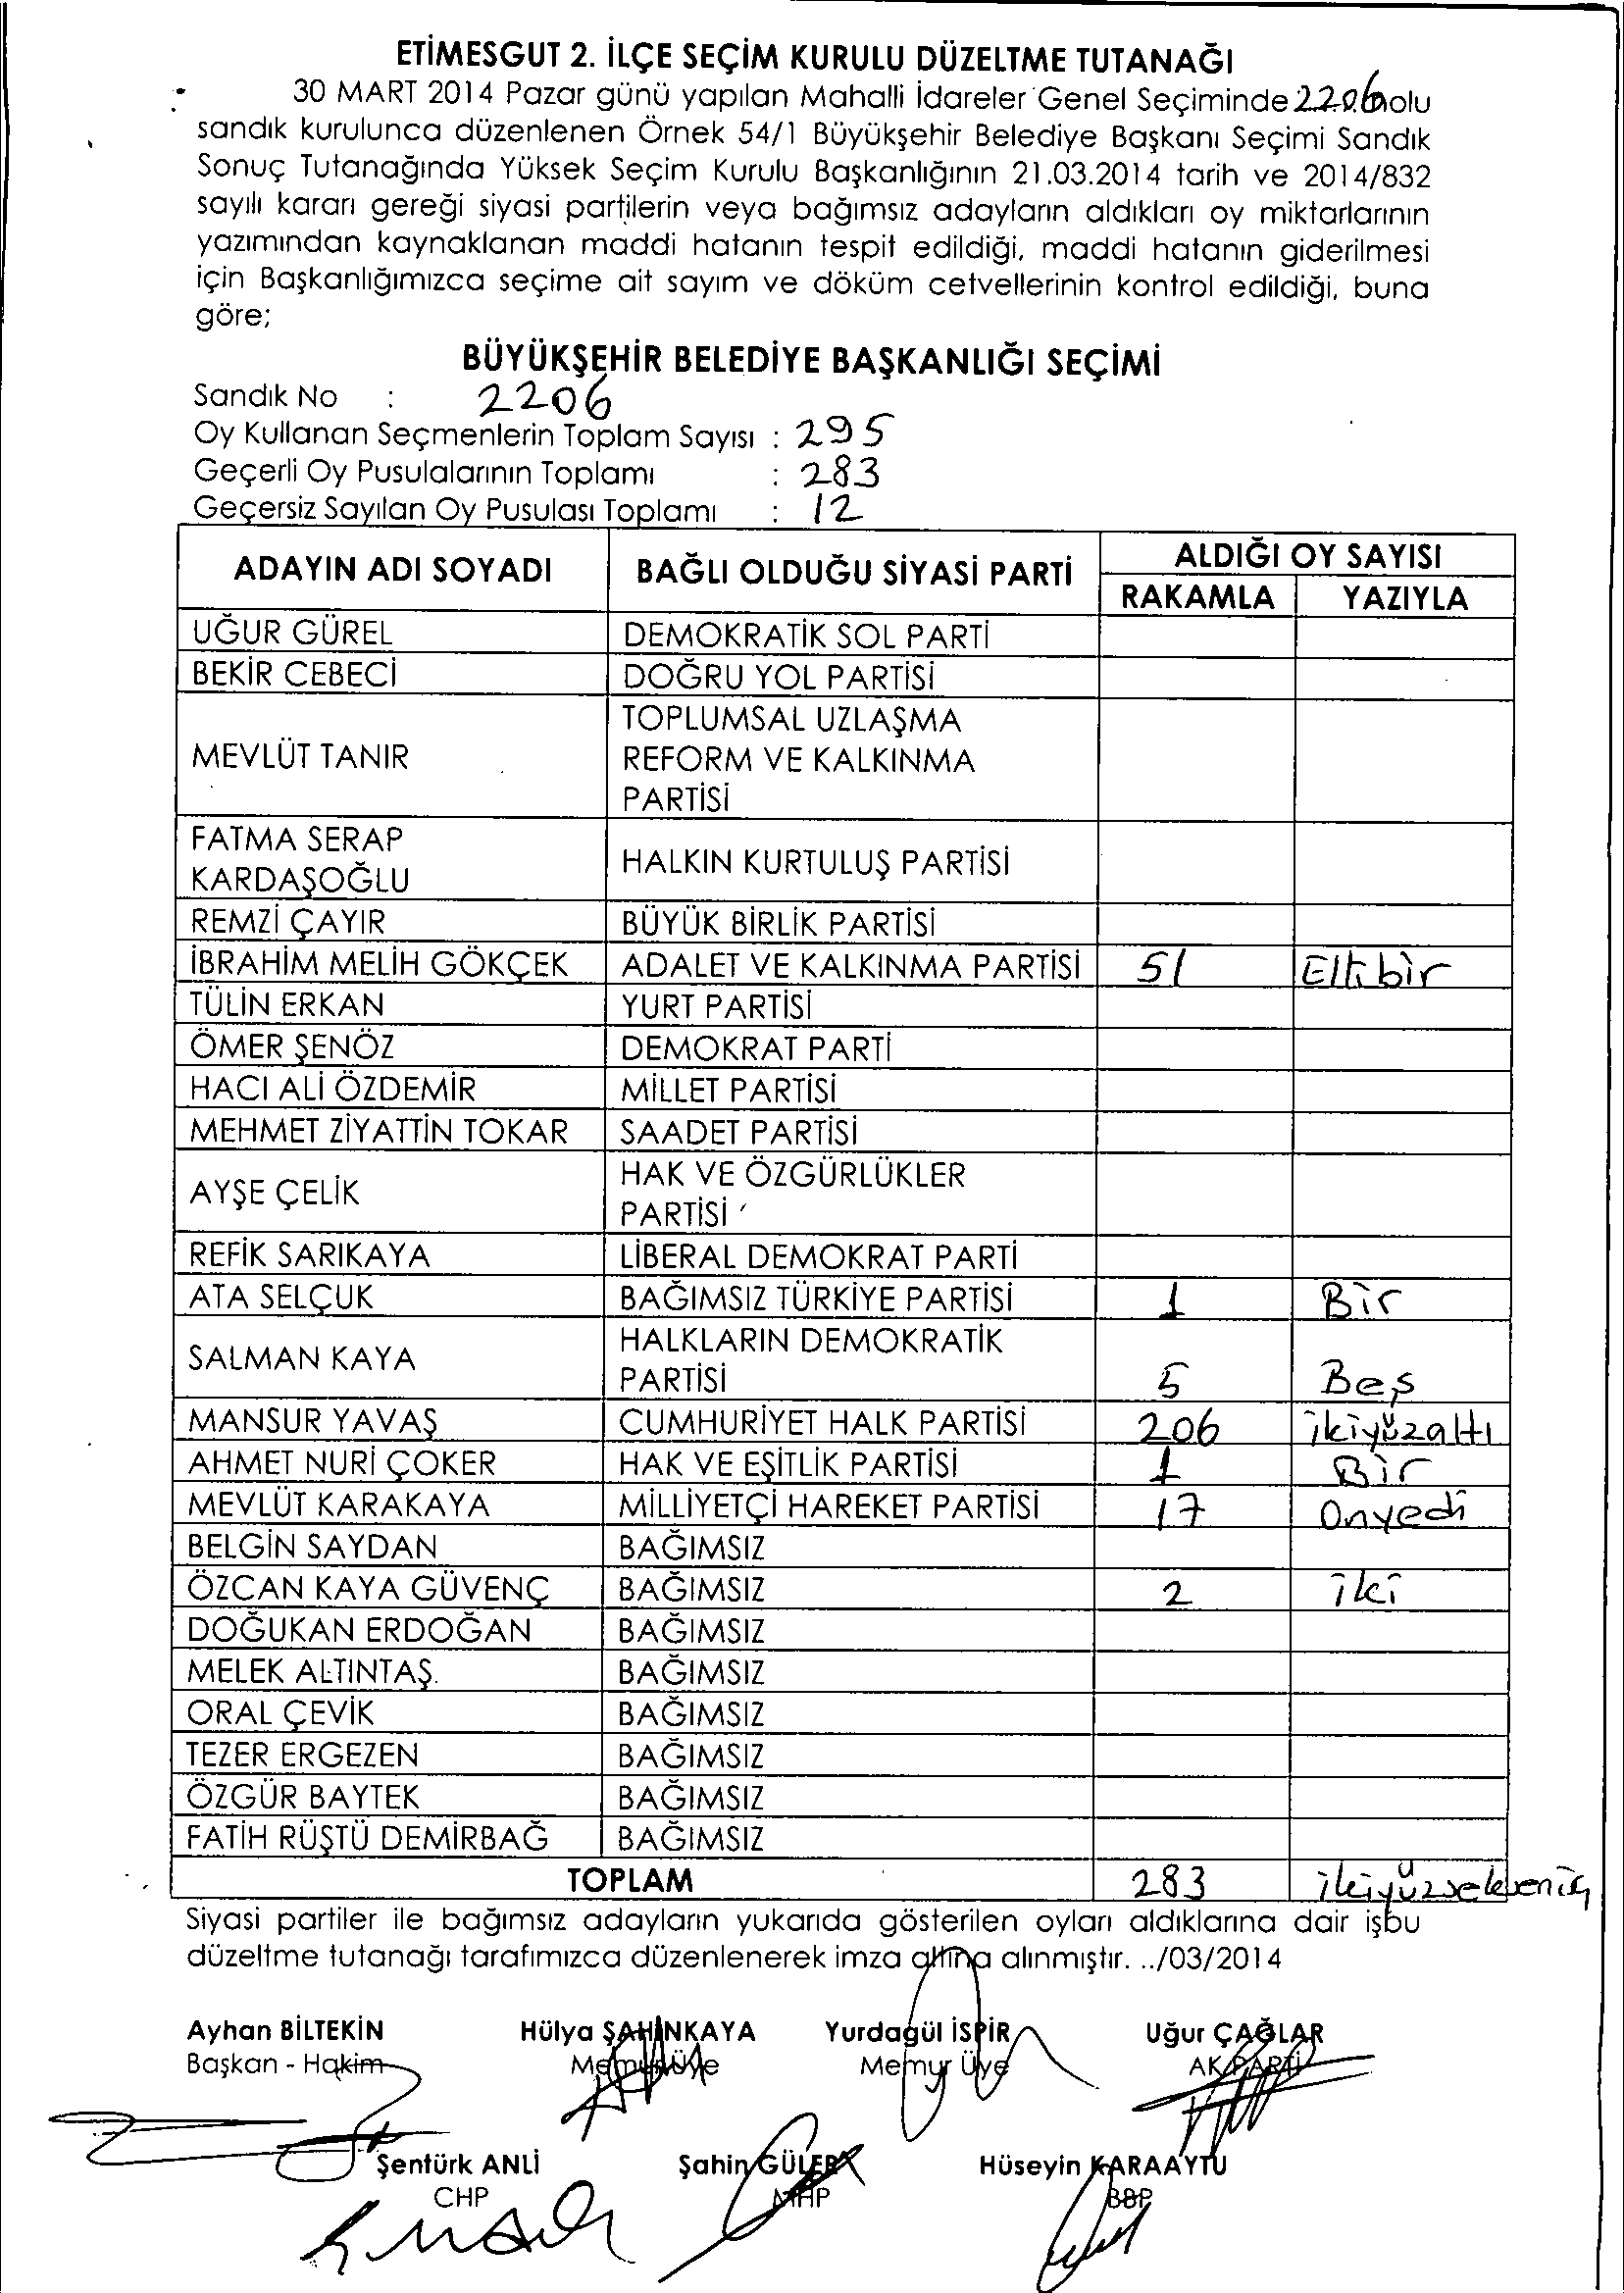 ETİMESGUT 2. İLÇE SEÇİM KURULU DÜZELTME TUTANAĞI
30 MART 2014 Pazar günü yapılan Mahalli İdareler Genel Seçiminde 2206 nolu
sandık kurulunca düzenlenen Örnek 54/1 Büyükşehir Belediye Başkanı Seçimi Sandık
Sonuç Tutanağında Yüksek Seçim Kurulu Başkanlığının 21.03.2014 tarih ve 2014/832
sayılı kararı gereği siyasi partilerin veya bağımsız adayların aldıkları oy miktarlarının
yazımından kaynaklanan maddi hatanın tespit edildiği, maddi hatanın giderilmesi
için Başkanlığımızca seçime ait sayım ve döküm cetvellerinin kontrol edildiği, buna
göre;
BÜYÜKŞEHİR BELEDİYE BAŞKANLIĞI SEÇİMİ
Sandık No : 2206
Oy Kullanan Seçmenlerin Toplam Sayısı : 295
Geçerli Oy Pusulalarının Toplamı : 283
Geçersiz Sayılan Oy Pusulası Toplamı : 12
ADAYIN ADI SOYADI BAĞLI OLDUĞU SİYASİ PARTİ ALDIĞI OY SAYISI
RAKAMLA YAZIYLA
UĞUR GÜREL DEMOKRATİK SOL PARTİ
BEKİR CEBECİ DOĞRU YOL PARTİSİ
MEVLÜT TANIR TOPLUMSAL UZLAŞMA
REFORM VE KALKINMA
PARTİSİ
FATMA SERAP
KARDAŞOĞLU HALKIN KURTULUŞ PARTİSİ
REMZİ ÇAYIR BÜYÜK BİRLİK PARTİSİ
İBRAHİM MELİH GÖKÇEK ADALET VE KALKINMA PARTİSİ 51 Ellibir
TÜLİN ERKAN YURT PARTİSİ
ÖMER ŞENÖZ DEMOKRAT PARTİ
HACI ALİ ÖZDEMİR MİLLET PARTİSİ
MEHMET ZİYATTİN TOKAR SAADET PARTİSİ
AYŞE ÇELİK HAK VE ÖZGÜRLÜKLER
PARTİSİ
REFİK SARIKAYA LİBERAL DEMOKRAT PARTİ
ATA SELÇUK BAĞIMSIZ TÜRKİYE PARTİSİ 1 Bir
SALMAN KAYA HALKLARIN DEMOKRATİK
PARTİSİ 5 Beş
MANSUR YAVAŞ CUMHURİYET HALK PARTİSİ 206 ikiyüzaltı
AHMET NURİ ÇOKER HAK VE EŞİTLİK PARTİSİ 1 Bir
MEVLÜT KARAKAYA MİLLİYETÇİ HAREKET PARTİSİ 17 Onyedi
BELGİN SAYDAN BAĞIMSIZ
ÖZCAN KAYA GÜVENÇ BAĞIMSIZ 2 iki
DOĞUKAN ERDOĞAN BAĞIMSIZ
MELEK ALTINTAŞ BAĞIMSIZ
ORAL ÇEVİK BAĞIMSIZ
TEZER ERGEZEN BAĞIMSIZ
ÖZGÜR BAYTEK BAĞIMSIZ
FATİH RÜŞTÜ DEMİRBAĞ BAĞIMSIZ
TOPLAM 283 ikiyüzseksenüç
Siyasi partiler ile bağımsız adayların yukarıda gösterilen oyları aldıklarına dair işbu
düzeltme tutanağı tarafımızca düzenlenerek imza altına alınmıştır. ../03/2014
Ayhan BİLTEKİN Hülya ŞAHİNKAYA Yurdagül İSPİR Uğur ÇAĞLAR
Başkan - Hakim Memur Üye Memur Üye AK PARTİ
Şentürk ANLİ Şahin GÜLER Hüseyin KARAAYTU
CHP MHP BBP